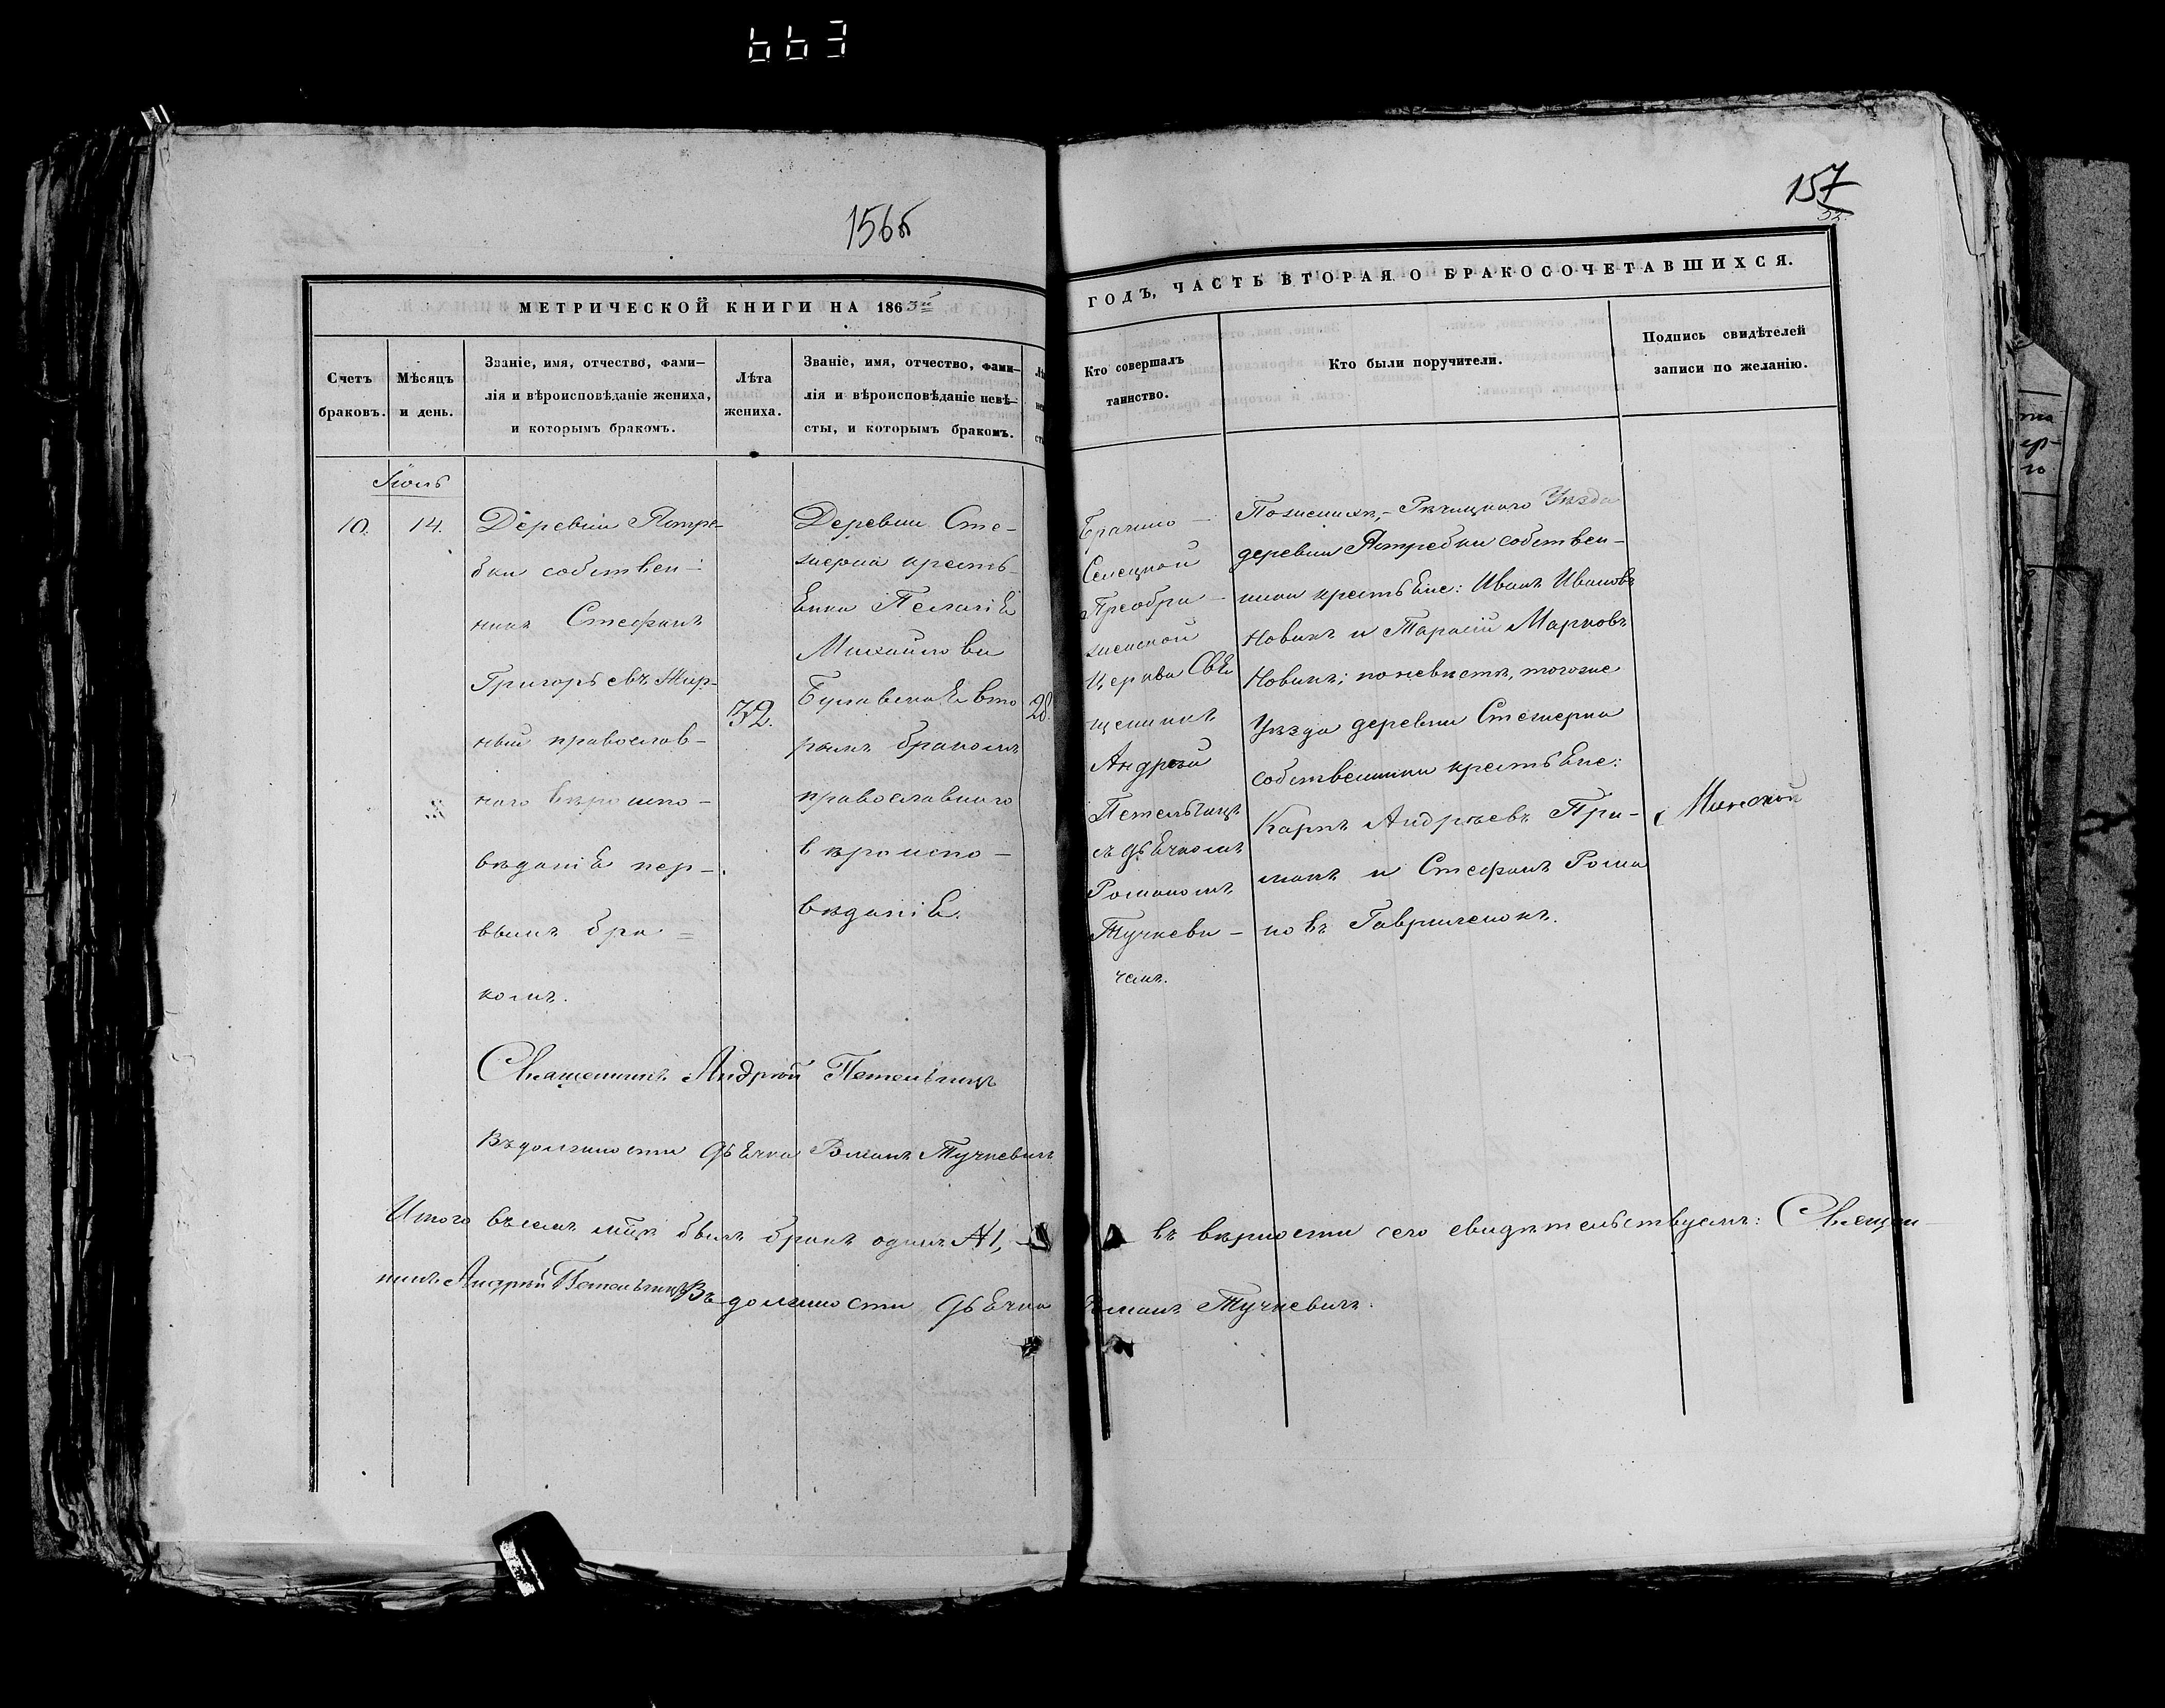 663
156б
157
32.
МЕТРИЧЕСКОЙ КНИГИ НА 1863й
ГОДЪ, ЧАСТЬ ВТОРАЯ О БРАКОСОЧЕТАВШИХСЯ.
Счетъ
браковъ.
Мѣсяцъ
и день.
Званіе, имя, отчество, фами–
лія и вѣроисповѣданіе жениха,
и которымъ бракомъ.
Лѣта
жениха.
Званіе, имя, отчество, фами–
лія и вѣроисповѣданіе невѣ–
сты, и которымъ бракомъ.
Кто совершалъ
таинство.
Кто были поручители.
Подпись свидѣтелей
записи по желанію.
10.
14.
Деревни Ястре-
бки собствен-
никъ Стефанъ
Григорьевъ
ный православ-
наго вѣроиспо-
вѣданія пер-
вымъ бра=
комъ.
32.
Деревни
кресть-
янка Пелагія
Михайлова
вто
рымъ бракомъ
православнаго
вѣроиспо-
вѣданія.
28.
Преобра-
женской
Церкви Свя
щенникъ
Андрей
Петельчицъ
съ дьячкомъ
Романомъ
Тучкеви-
чемъ.
По женихѣ,- Рѣчицкаго Уѣзда
деревни Ястребки собствен-
ники крестьяне: Иванъ Ивановъ
Новикъ и Тарасій Марковъ
Новикъ; по невѣстѣ, тогоже
Уѣзда деревни
собственники крестьяне:
Карпъ Андреевъ При-
макъ и Стефанъ Рома
новъ Гавриленокъ.
Священникъ Андрей Петельчицъ
Въ должности дьячка Романъ Тучкевичъ
Итого въ семъ м҃цѣ былъ бракъ одинъ № 1,
въ вѣрности сего свидѣтельствуемъ: Священ-
никъ Андрей Петельчицъ Въ должности дьячка Романъ Тучкевичъ.